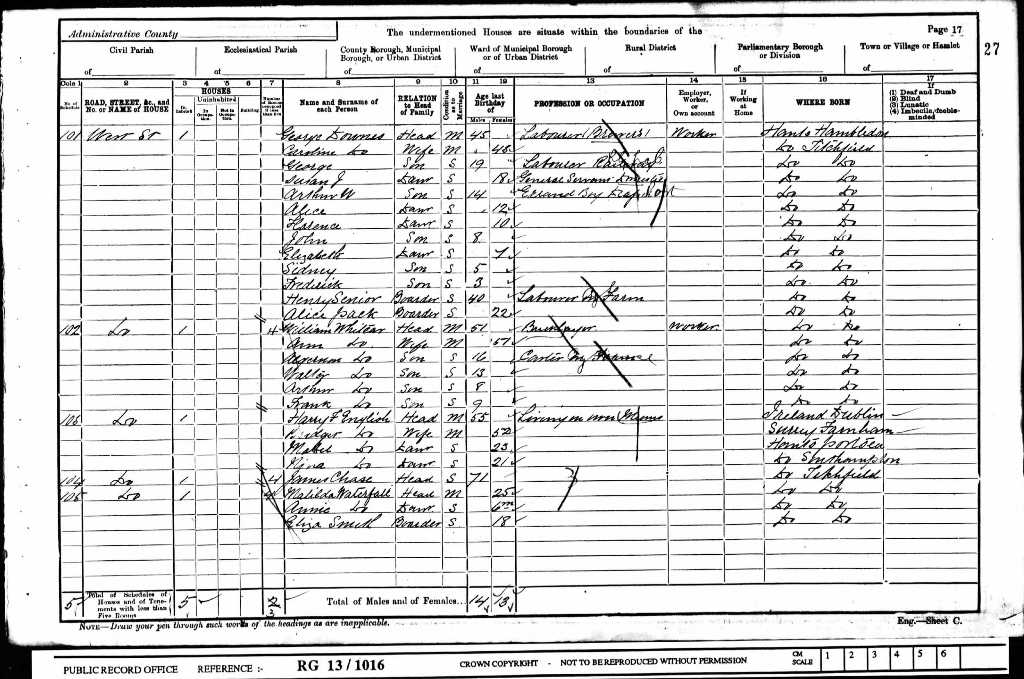 Administrative County
The undermentioned Houses are situate within the boundaries of the
Page 17
27
Civil Parish
of
Ecclesiastical Parish
of
County Borough, Municipal Borough, or Urban District
of
Ward of Municipal Borough or of Urban District
of
Rural District
of
Parliamentary Borough or Division
of
Town or Village or Hamlet
of
Cols 1 2 3 4 5 6 7 8 9 10 11 12 13 14 15 16 17
No. of Schedule
ROAD, STREET, &c., and No. or NAME of HOUSE
HOUSES
Inhabited
Uninhabited
In Occupation
Not in Occupation
Building
Name and Surname of each Person
RELATION to Head of Family
Condition as to Marriage
Age last Birthday of
Males Females
PROFESSION OR OCCUPATION
Employer, Worker, or Own account
If Working at Home
WHERE BORN
If
(1) Deaf and Dumb
(2) Blind
(3) Lunatic
(4) Imbecile, feeble-minded
101 West St 1 George Downes Head M 45 Labourer Worker Hants Hambledon
Caroline Do Wife M 45 Do Titchfield
George Son S 19 Labourer Do Do
Susan J Daur S 18 General Servant Domestic Do Do
Arthur W Son S 14 Errand Boy Do Do
Alice Daur S 12 Do Do
Florence Daur S 10 Do Do
John Son S 8 Do Do
Elizabeth Daur S 7 Do Do
Sidney Son S 5 Do Do
Frederick Son S 3 Do Do
Henry Senior Boarder S 40 Labourer Farm Do Do
Alice Boarder S 22 Do Do
102 Do 1 4 William Head M 51 Bricklayer Worker Do Do
Ann Do Wife M 51 Do Do
Do Son S 16 Carter Do Do
Walter Do Son S 13 Do Do
Arthur Do Son S 8 Do Do
Frank Do Son S 9 Do Do
103 Do 1 Harry F English Head M 55 Living on own Means Ireland Dublin
Do Wife M 52 Surrey Farnham
Mabel Do Daur S 23 Hants Portsea
Nina Do Daur S 21 Do Southampton
104 Do 1 4 James Chase Head S 71 Do Titchfield
105 Do 1 4 Matilda Waterfall Head M 25 Do Do
Annie Do Daur S 6m Do Do
Eliza Smith Boarder S 18 Do Do
5 Total of Schedules of Houses and of Tenements with less than Five Rooms 5 Total of Males and of Females... 14 13
NOTE—Draw your pen through such words of the headings as are inapplicable.
Eng.—Sheet C.
PUBLIC RECORD OFFICE REFERENCE :- RG 13/1016 CROWN COPYRIGHT - NOT TO BE REPRODUCED WITHOUT PERMISSION CM SCALE 1 2 3 4 5 6